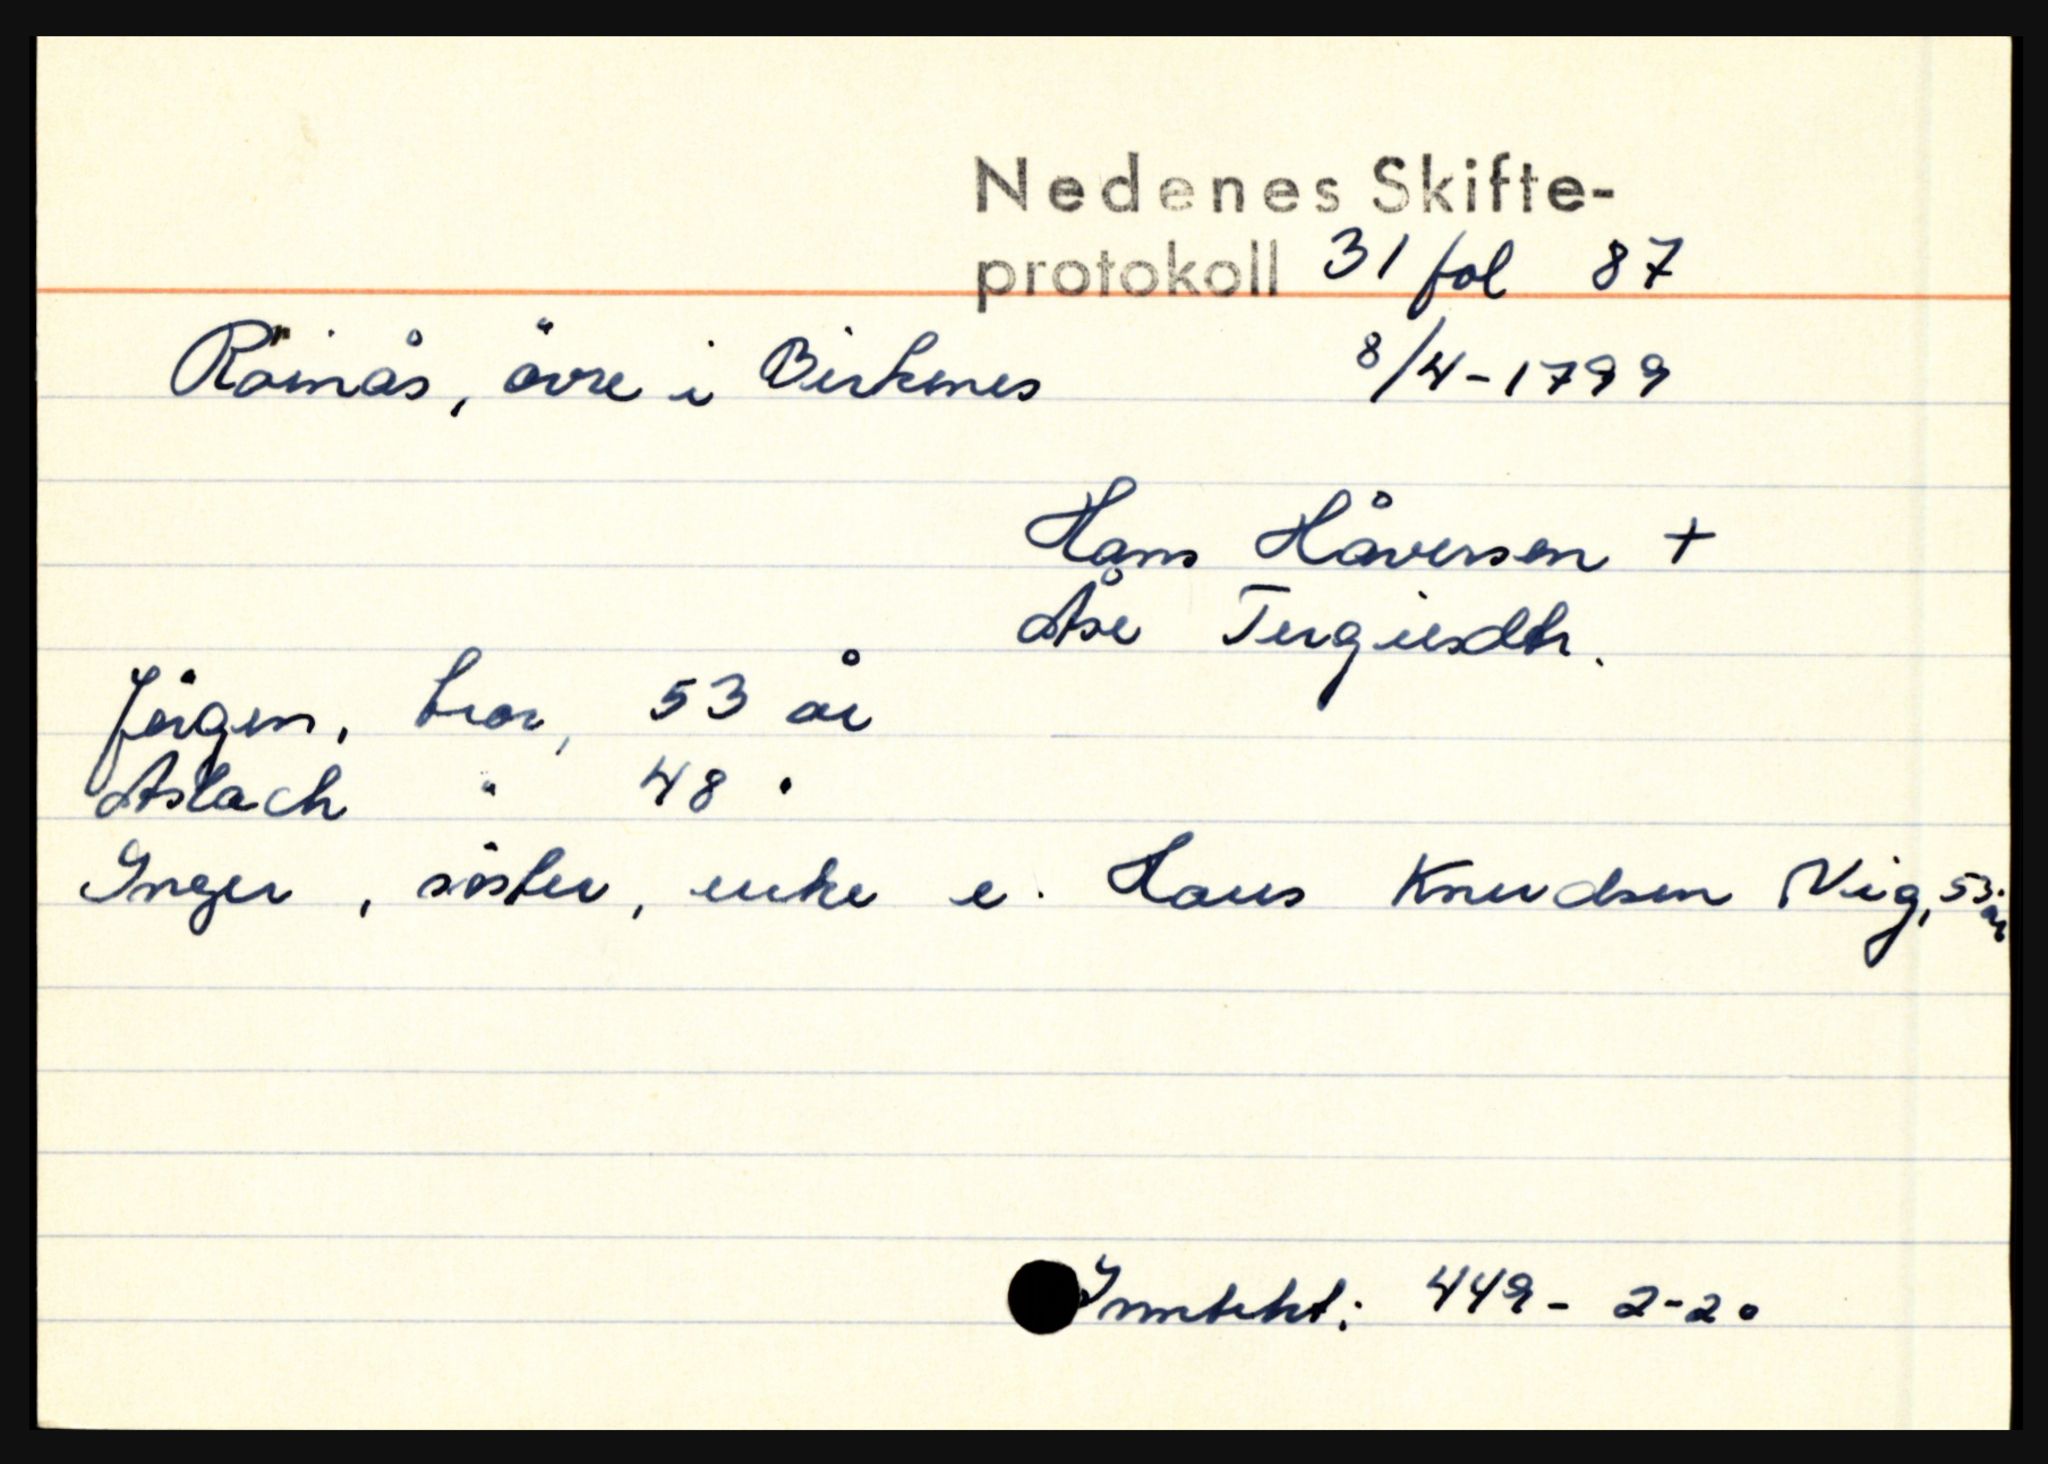 Nedenes Skifte-
protokoll 31 fol 87
Röinås, övre i Birkenes 8/4-1799
Hans Håversen +
Åse Tergiesdtr.
Jörgen, bror, 53 år
Aslach " 48 "
Inger, söster, enke e. Hans Knudsen Vig, 53 år
Inntekt: 449- 2-20